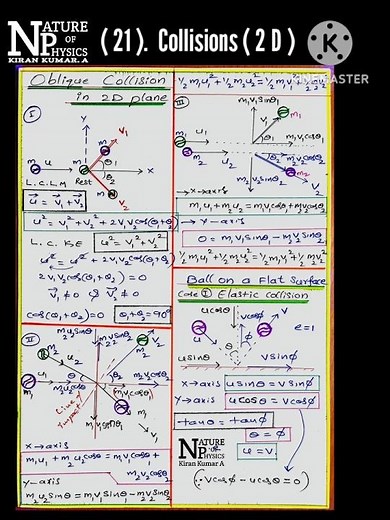 NATURE
OF
PHYSICS
KIRAN KUMAR. A
(21). Collisions (2 D)
K
KINEMASTER
Oblique Collision
in 2D plane
I
y
v₁
m
u
m
θ₁
θ₂
x
Rest
m
v₂
L.C.L.M
u⃗ = v⃗₁ + v⃗₂
u² = v₁² + v₂² + 2v₁v₂cos(θ₁+θ₂)
L.C. KE
u² = v₁² + v₂²
u² = u² + 2v₁v₂cos(θ₁+θ₂)
2v₁v₂cos(θ₁+θ₂) = 0
v⃗₁ ≠ 0 & v⃗₂ ≠ 0
cos(θ₁+θ₂) = 0
θ₁+θ₂ = 90°
II
m₂u₂sinθ
m₂v₂sinθ₂
v₂
m₂
m₂
u₂
m₂u₂cosθ
θ₂
m₂v₂cosθ₂
m₁
u₁
m₁v₁cosθ₁
Line of
Impact
m₁v₁sinθ₁
m₁
v₁
x-axis
m₁u₁ + m₂u₂cosθ = m₁v₁cosθ₁ +
m₂v₂cosθ₂
y-axis
m₂u₂sinθ = m₁v₁sinθ₁ - m₂v₂sinθ₂
½m₁u₁² + ½m₂u₂² = ½m₁v₁² + ½m₂v₂²
III
m₁v₁sinθ₁
m₁
m₁
u₁
v₁
θ₁
m₁v₁cosθ₁
m₂
u₂
θ₂
m₂v₂cosθ₂
m₂
m₂v₂sinθ₂
v₂
x-axis
m₁u₁ + m₂u₂ = m₁v₁cosθ₁ + m₂v₂cosθ₂
y-axis
0 = m₁v₁sinθ₁ - m₂v₂sinθ₂
½m₁u₁² + ½m₂u₂² = ½m₁v₁² + ½m₂v₂²
Ball on a Flat Surface
Case I Elastic collision
ucosθ
vcosϕ
u
v
e=1
θ
ϕ
usinθ
vsinϕ
x-axis
usinθ = vsinϕ
y-axis
ucosθ = vcosϕ
tanθ = tanϕ
θ = ϕ
u = v
NATURE
OF
PHYSICS
Kiran Kumar A
(∵ vcosϕ - ucosθ = 0)